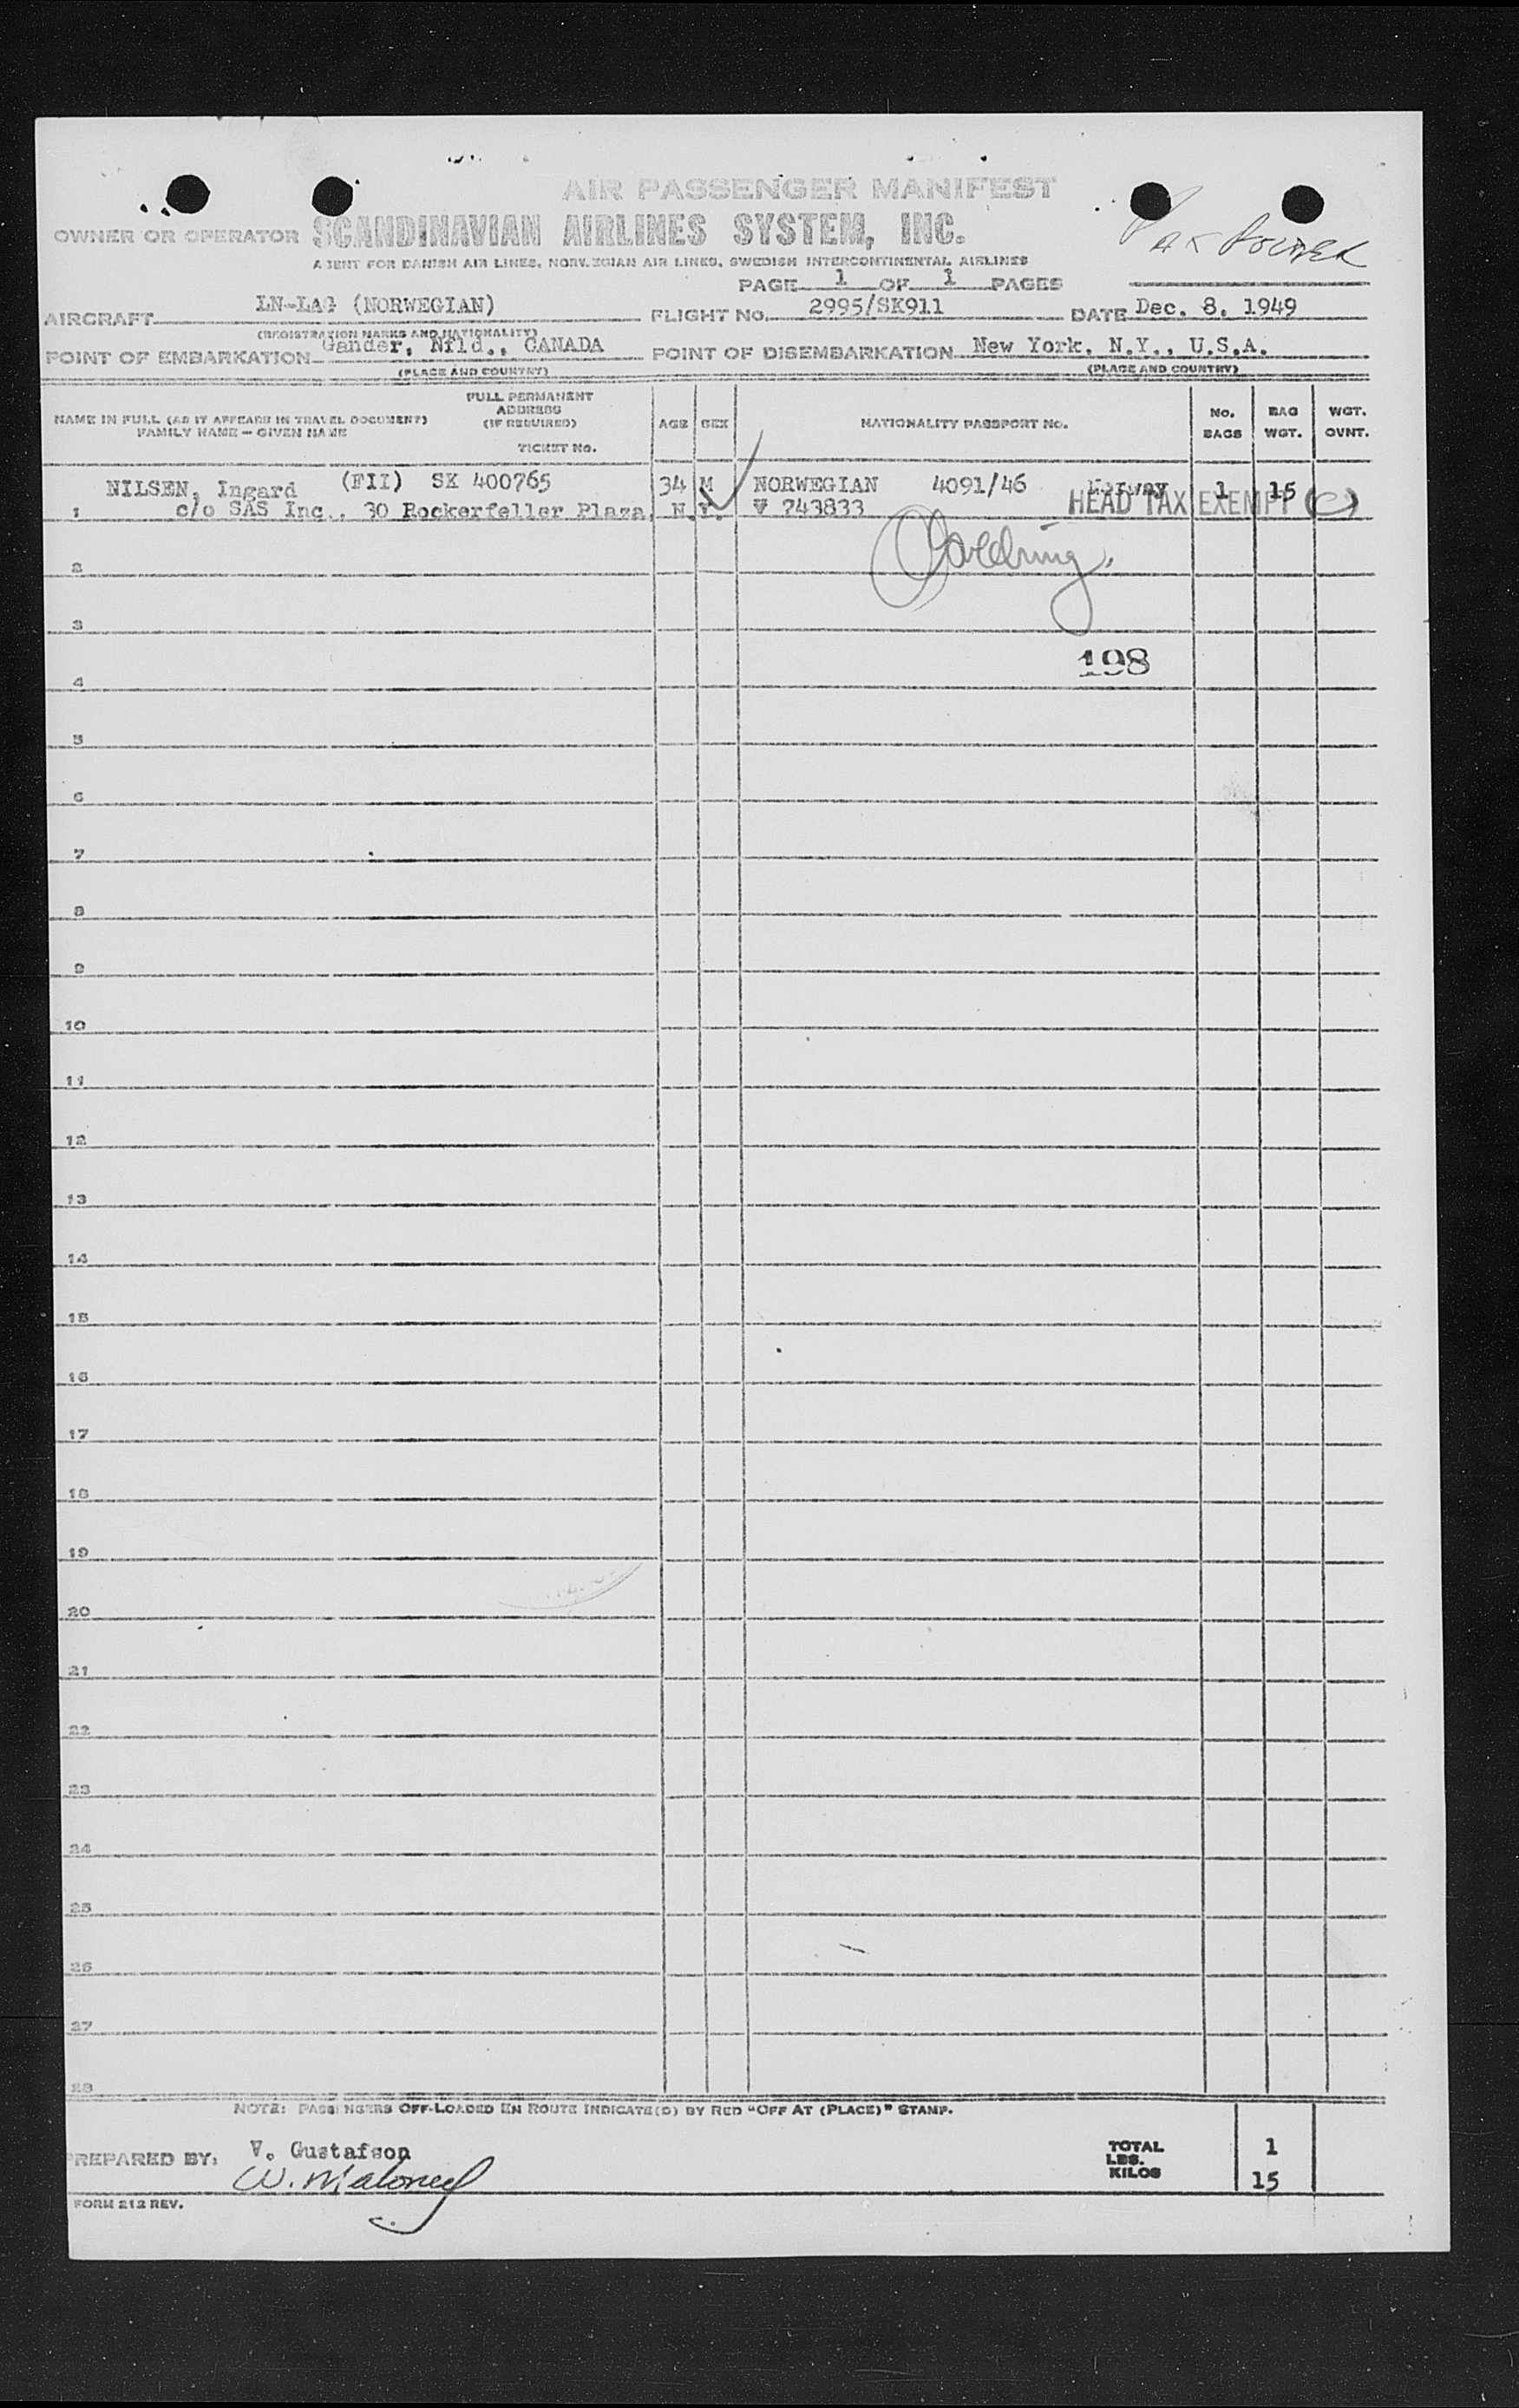 AIR PASSENGER MANIFEST
OWNER OR OPERATOR SCANDINAVIAN AIRLINES SYSTEM, INC.
AGENT FOR DANISH AIR LINES, NORWEGIAN AIR LINES, SWEDISH INTERCONTINENTAL AIRLINES
PAGE 1 OF 1 PAGES
AIRCRAFT LN-LAG (NORWEGIAN) FLIGHT No. 2995/SK911 DATE Dec. 8, 1949
(REGISTRATION MARKS AND NATIONALITY)
POINT OF EMBARKATION Gander, Nfld., CANADA POINT OF DISEMBARKATION New York, N.Y., U.S.A.
(PLACE AND COUNTRY) (PLACE AND COUNTRY)
NAME IN FULL (AS IT APPEARS IN TRAVEL DOCUMENT)
FAMILY NAME - GIVEN NAME
FULL PERMANENT
ADDRESS
(IF REQUIRED)
TICKET No.
AGE SEX NATIONALITY PASSPORT No. No. BAGS BAG WGT. WGT. OVNT.
NILSEN, Ingard (FII) SK 400765 34 M NORWEGIAN 4091/46 Norway 1 15
1 c/o SAS Inc., 30 Rockerfeller Plaza, N.Y. V 743833 HEAD TAX EXEMPT (C)
2
3
198
4
5
6
7
8
9
10
11
12
13
14
15
16
17
18
19
20
21
22
23
24
25
26
27
28
NOTE: PASSENGERS OFF-LOADED EN ROUTE INDICATE(D) BY RED "OFF AT (PLACE)" STAMP.
PREPARED BY: V. Gustafson
W. Maloney
TOTAL 1
LBS.
KILOS 15
FORM 212 REV.